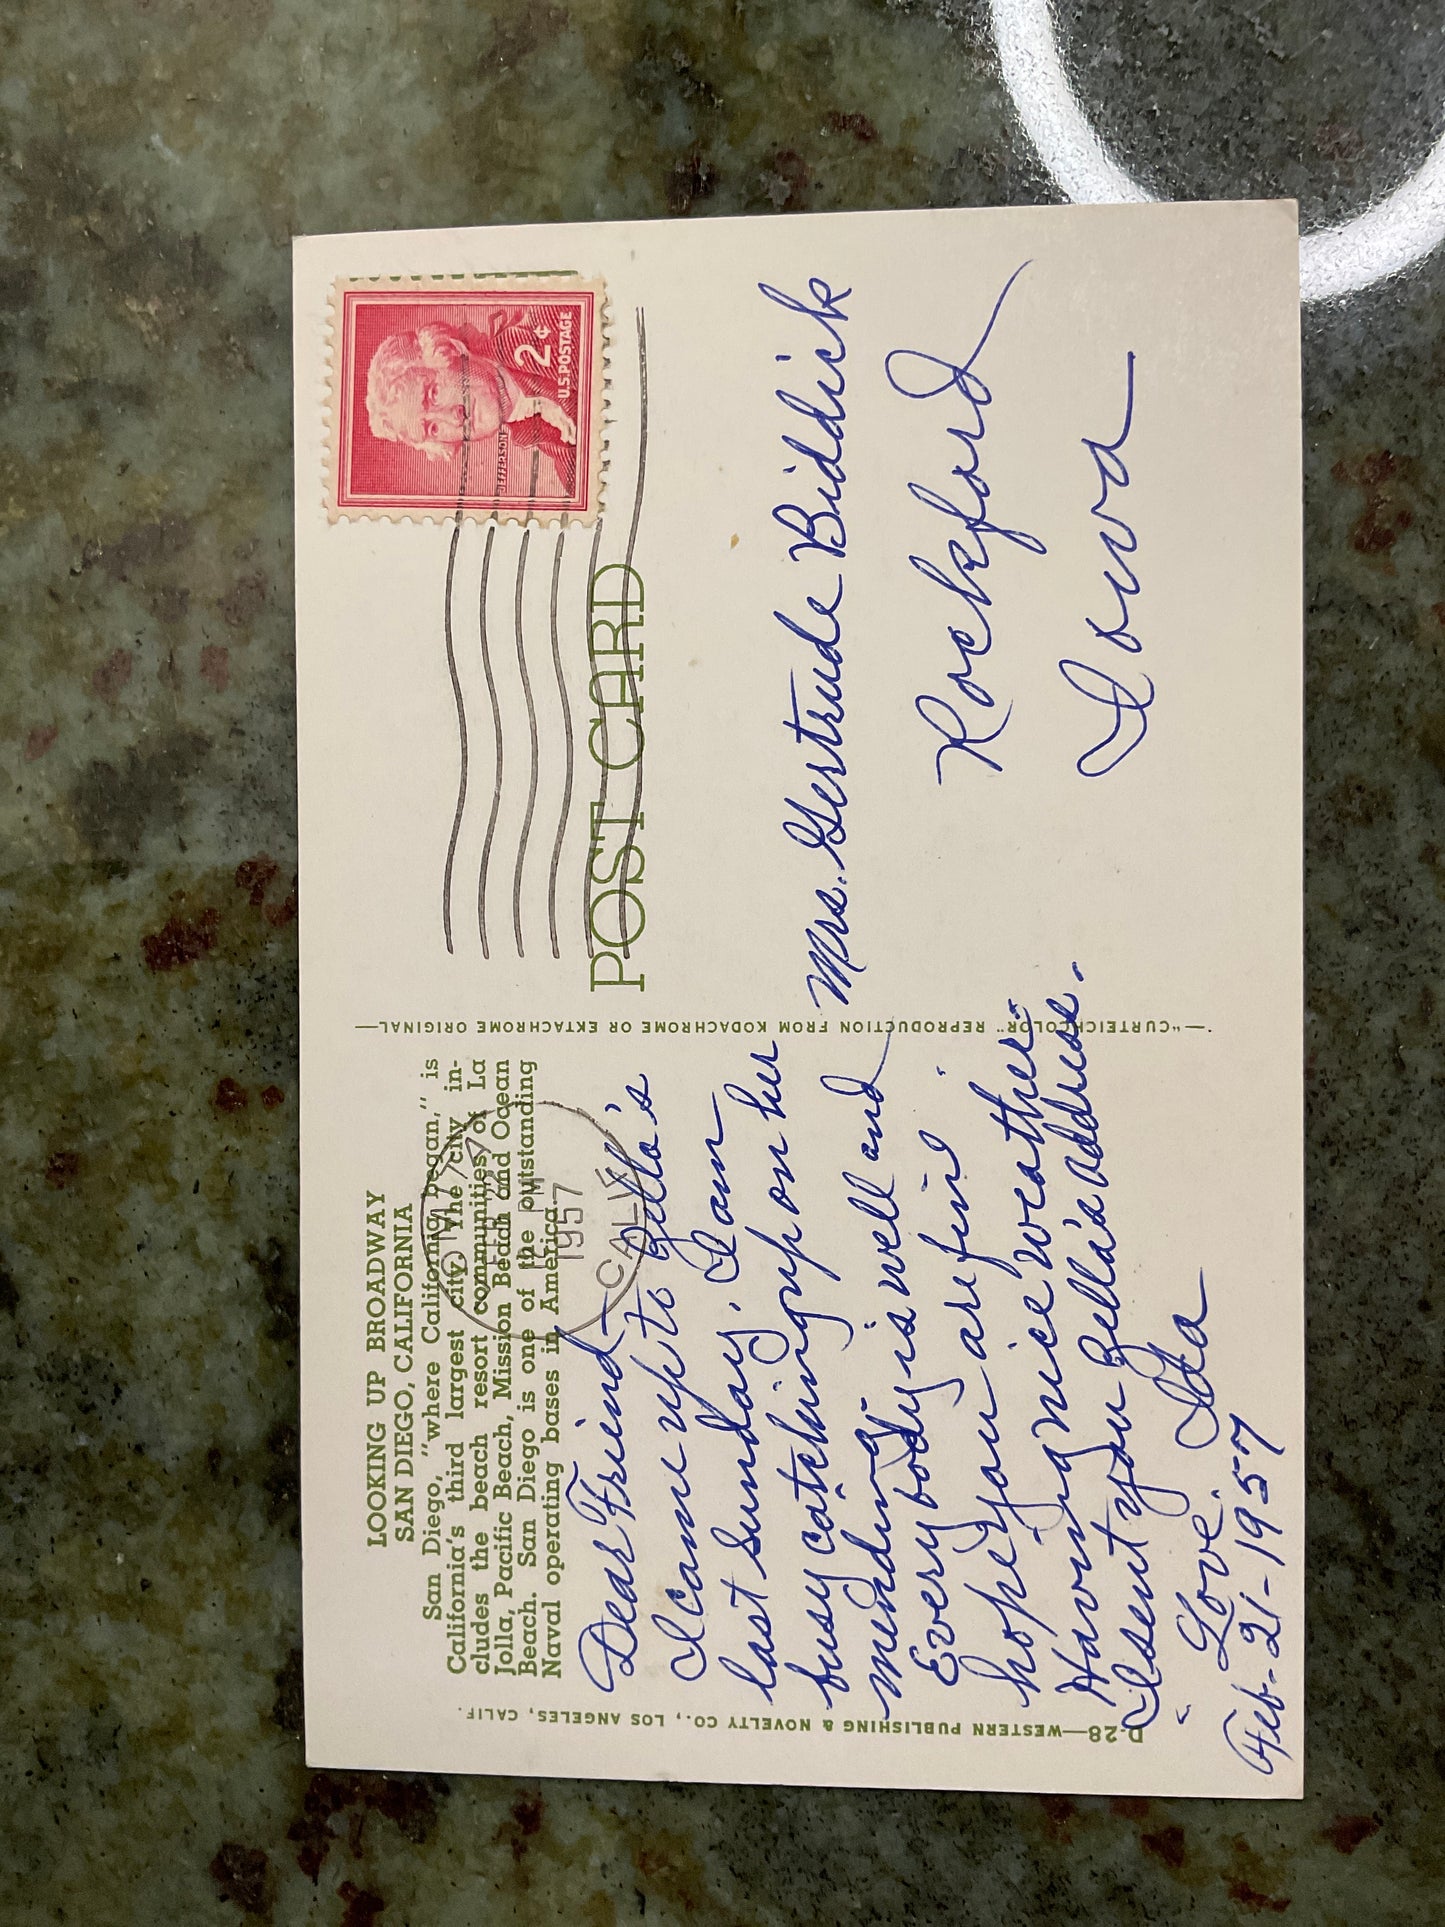 LOOKING UP BROADWAY
SAN DIEGO, CALIFORNIA
San Diego, "where California began," is
California's third largest city. The city in-
cludes the beach resort communities of La
Jolla, Pacific Beach, Mission Beach and Ocean
Beach. San Diego is one of the outstanding
Naval operating bases in America.
1957
CALIF
Dear Friend—
I came up to Zella's
last Sunday. I am
busy catching up on her
mending.
Everybody is well and
hope you are fine.
Having nice weather.
I sent you Zella's address.
Love. Ida
Feb-21-1957
P.28—WESTERN PUBLISHING & NOVELTY CO., LOS ANGELES, CALIF.
—"CURTEICHCOLOR" REPRODUCTION FROM KODACHROME OR EKTACHROME ORIGINAL—
JEFFERSON
2¢
U.S. POSTAGE
POST CARD
Mrs. Gertrude Biddick
Rockford
Iowa